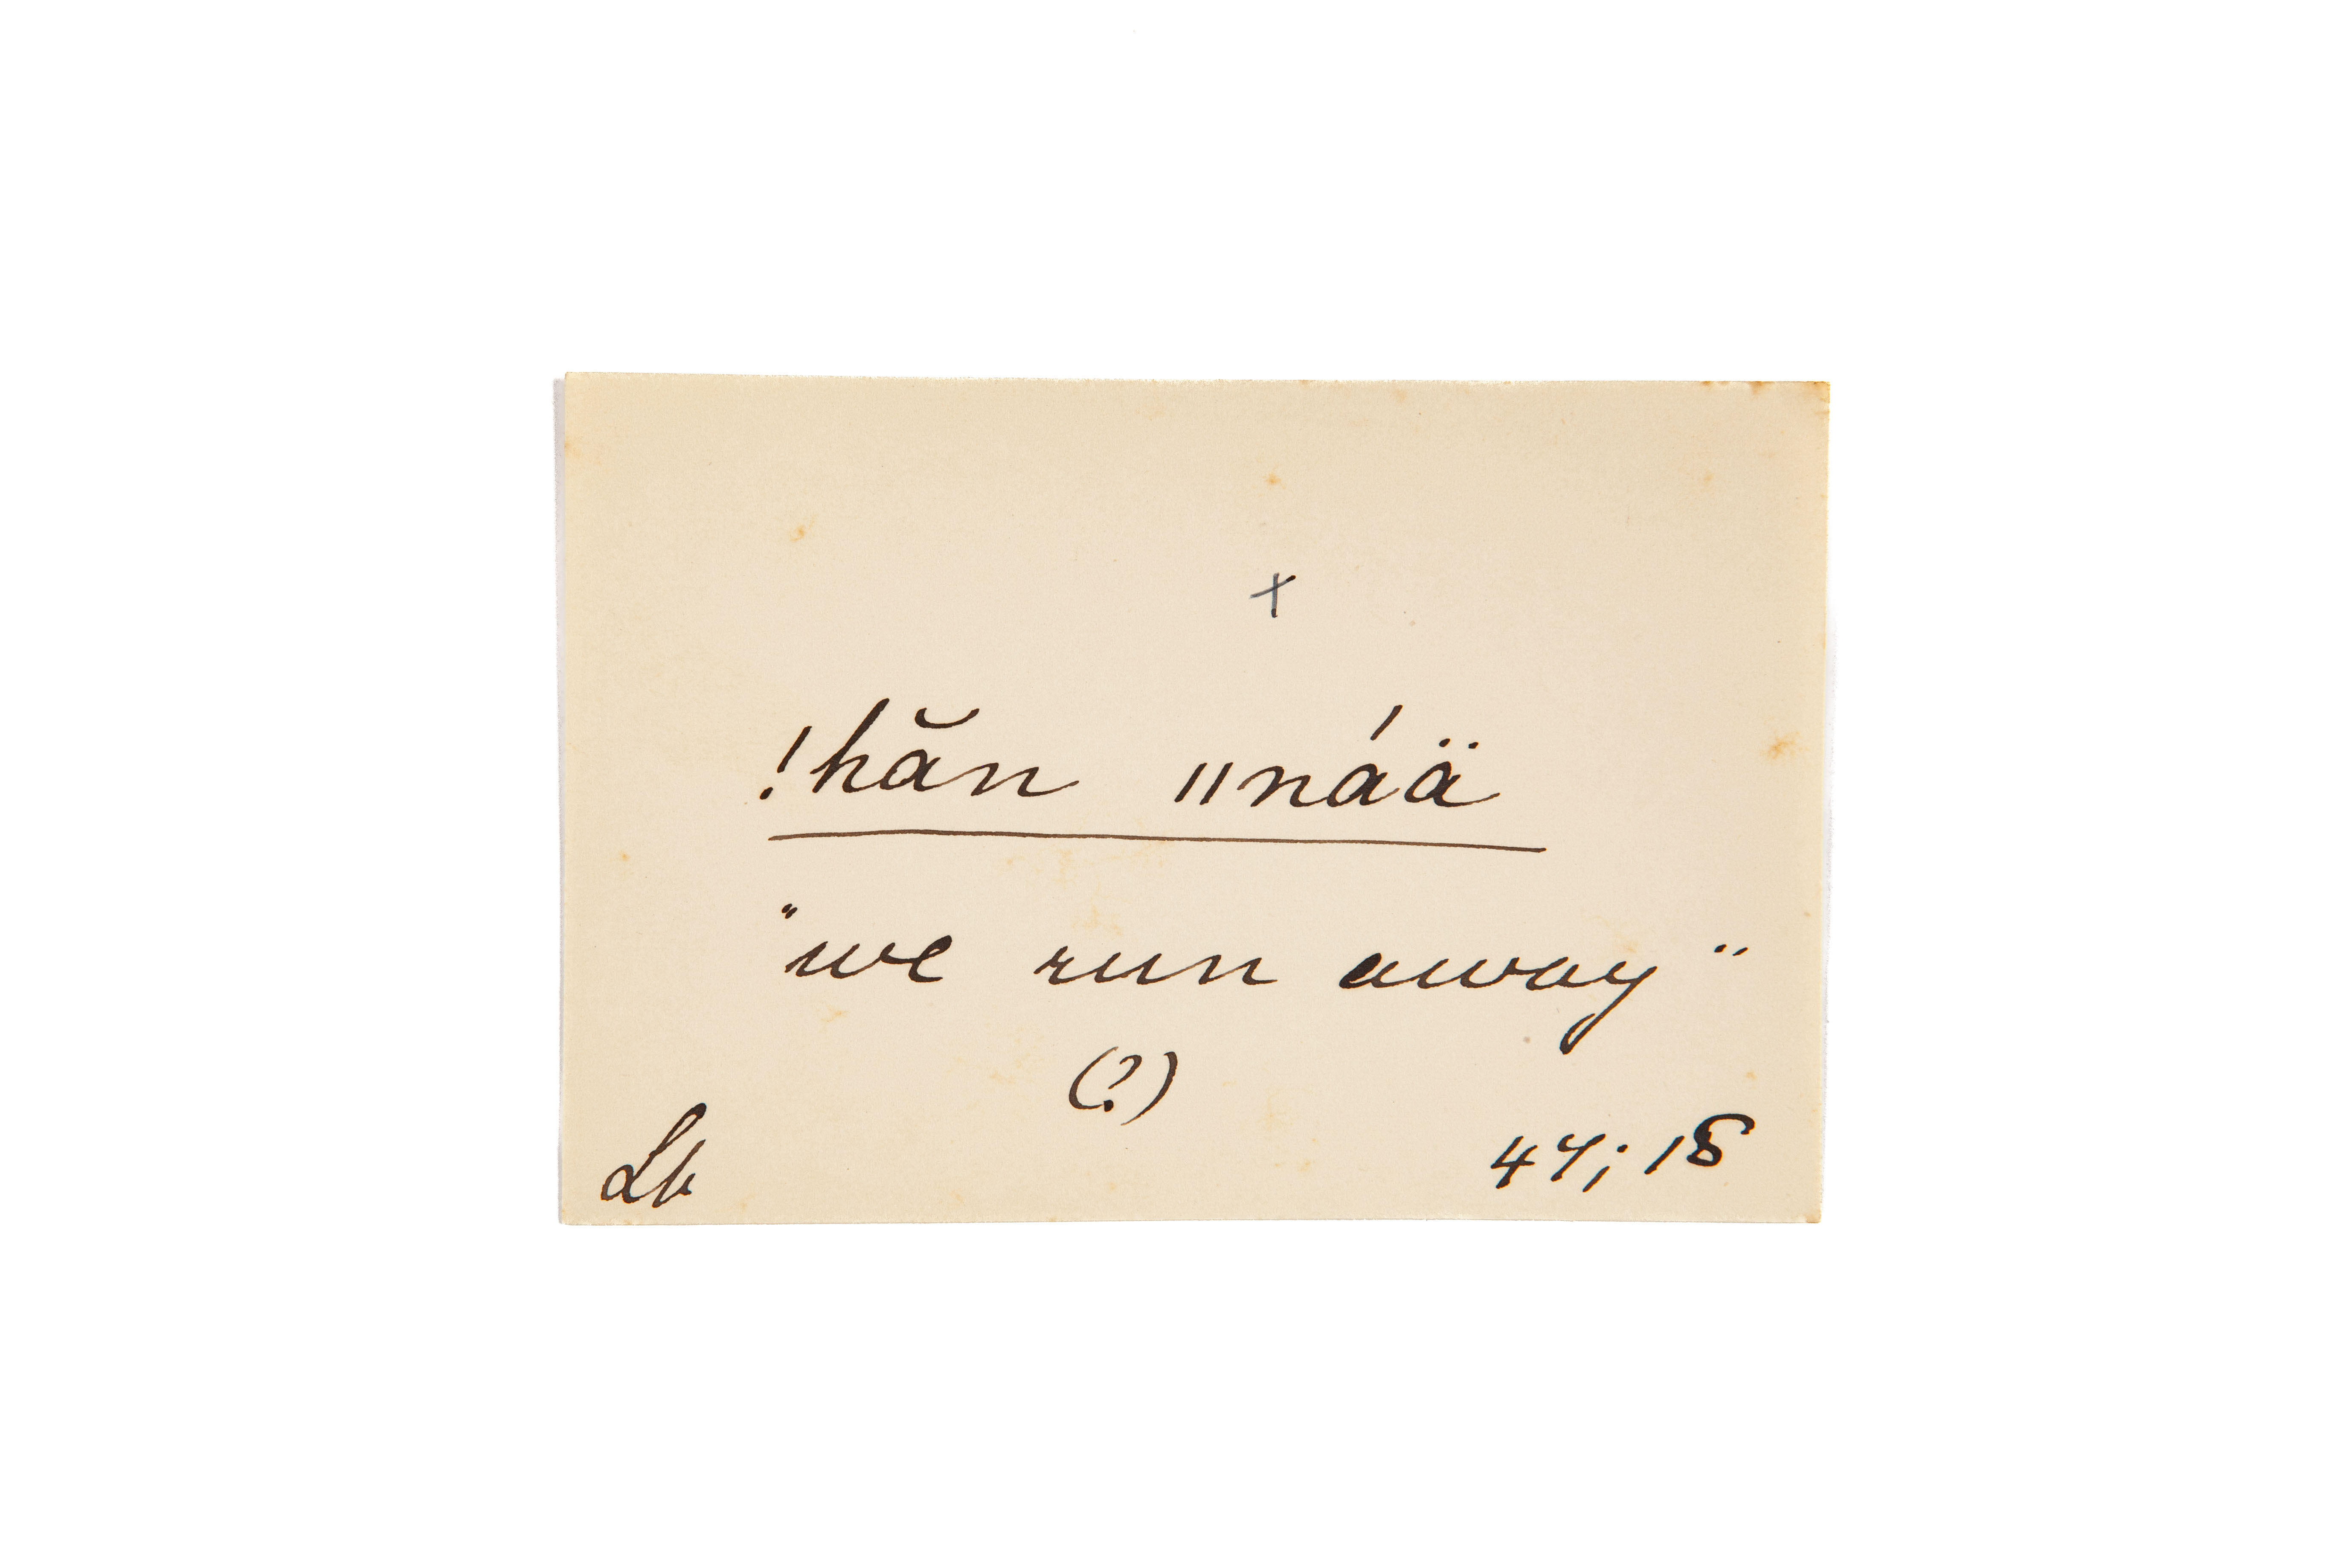 +
!hăn ||náä
"we run away"
(?)
Lb
44; 18